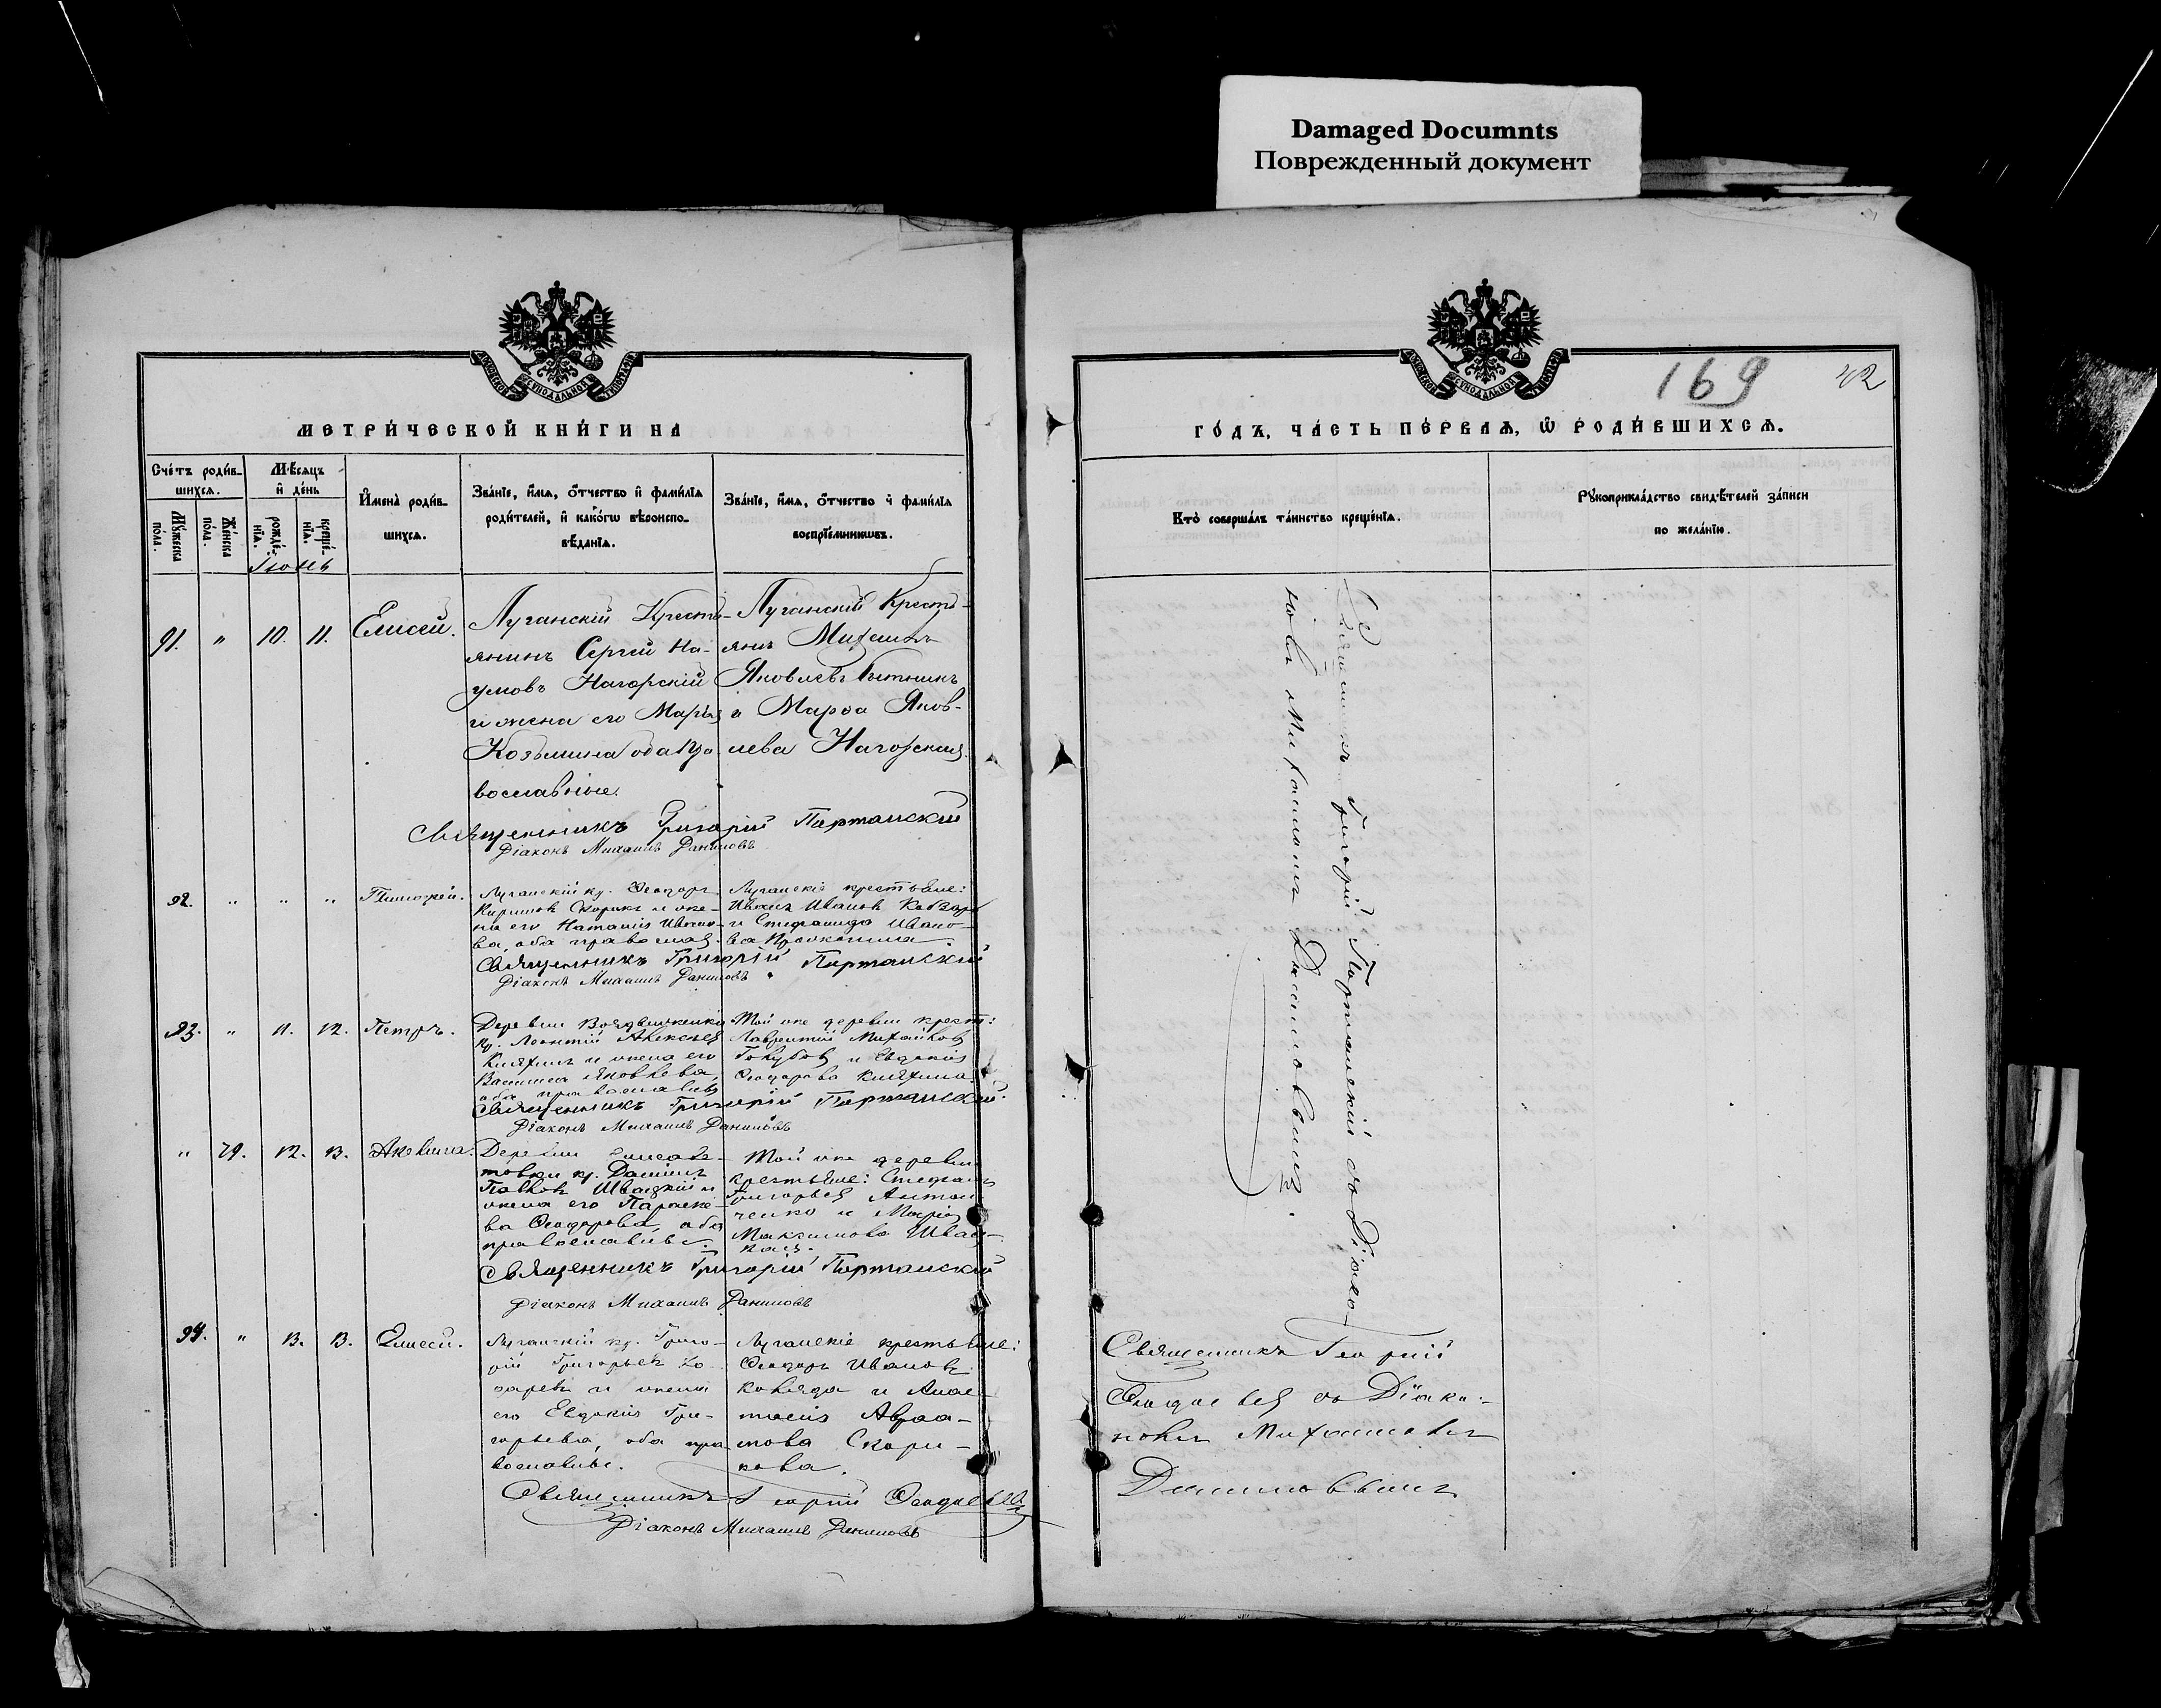 Damaged Documnts
Поврежденный документ
МЕТРИ́ЧЕСКОЙ КНИ́ГИ НА
Сче́тъ роди́в-
шихсѧ.
Мѣ́сяцъ
и҆ де́нь
Мꙋ́жеска
по́ла.
Же́нска
по́ла.
рожде́-
нїѧ.
креще́-
нїѧ.
И҆мена̀ роди́в-
шихсѧ.
Зва́нїе, и҆́мѧ, ѻ҆́тчество и҆ фами́лїѧ
роди́телей, и҆ како́гѡ вѣроиспо-
вѣ́данїѧ.
Зва́нїе, и҆́мѧ, ѻ҆́тчество и҆ фами́лїѧ
воспрїе́мникѡвъ.
91.
"
10.
11.
Елисей.
Луганскій Кресть-
янинъ Сергей На-
умовъ Нагорскій
и жена его Марья
Козьмина оба Пра
вославные.
Луганскій Кресть-
янъ Михаилъ
Яковлевъ
и Марѳа Яков-
лева Нагорская.
Священникъ Григорій Парманскій
Діаконъ Михаилъ Даниловъ
92.
"
"
"
Тимоѳей.
Луганскій кр. Ѳеодоръ
Скорикъ и же-
на его Наталія Ивано-
ва, оба православ.
Луганскіе крестьяне:
Иванъ Ивановъ Кобзарь
и Стефанида Ивано-
ва
Священникъ Григорій Парманскій
Діаконъ Михаилъ Даниловъ
93.
"
11.
12.
Петръ.
Деревни
кр. Леонтій Алексѣевъ
Княжинъ и жена его
Василиса Яковлева,
оба православны
Той же деревни крест:
Лаврентій Михайловъ
Голубовъ и Евдокія
Ѳеодорова Княжина.
Священникъ Григорій Парманскій.
Діаконъ Михаилъ Даниловъ
"
79.
12.
13.
Акилина.
Деревни Елисаве-
товки кр. Даніилъ
Павловъ Швадкій и
жена его Параске-
ва Ѳеодорова, оба
православные.
Той же деревни
крестьяне: Стефанъ
Григорьевъ Антон
ченко и Марія
Максимова Швад-
кая.
Священникъ Григорій Парманскій
Діаконъ Михаилъ Даниловъ
94.
"
13.
13.
Елисей.
Луганскій кр. Григо-
рій Григорьевъ Ко-
заревъ и жена
его Евдокія Гри-
горьева, оба пра
вославные.
Луганскіе крестьяне:
Ѳеодоръ Ивановъ
Коляда и Анас-
тасія Авраа-
мова Скори-
кова.
Священникъ Георгій Ѳеодосьевъ
Діаконъ Михаилъ Даниловъ
169
42
ГО́ДЪ, ЧА́СТЬ ПЕ́РВАѦ, Ѽ РОДИ́ВШИХСѦ.
Кто̀ соверша́лъ та́инство креще́нїѧ.
Рꙋкоприкла́дство свидѣ́телей за́писи
по жела́нїю.
Священникъ Григорій Парманскій съ Діако-
номъ Михаиломъ Даниловымъ.
Священникъ Георгій
Ѳеодосьевъ съ Діако-
номъ Михаиломъ
Даниловымъ